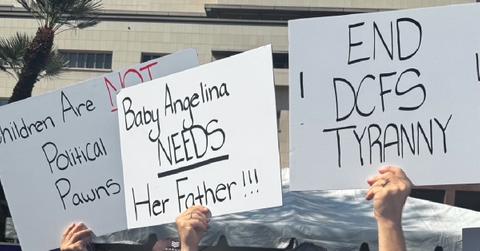 Children Are NOT
Political
Pawns
Baby Angelina
NEEDS
Her Father!!!
END
DCFS
TYRANNY